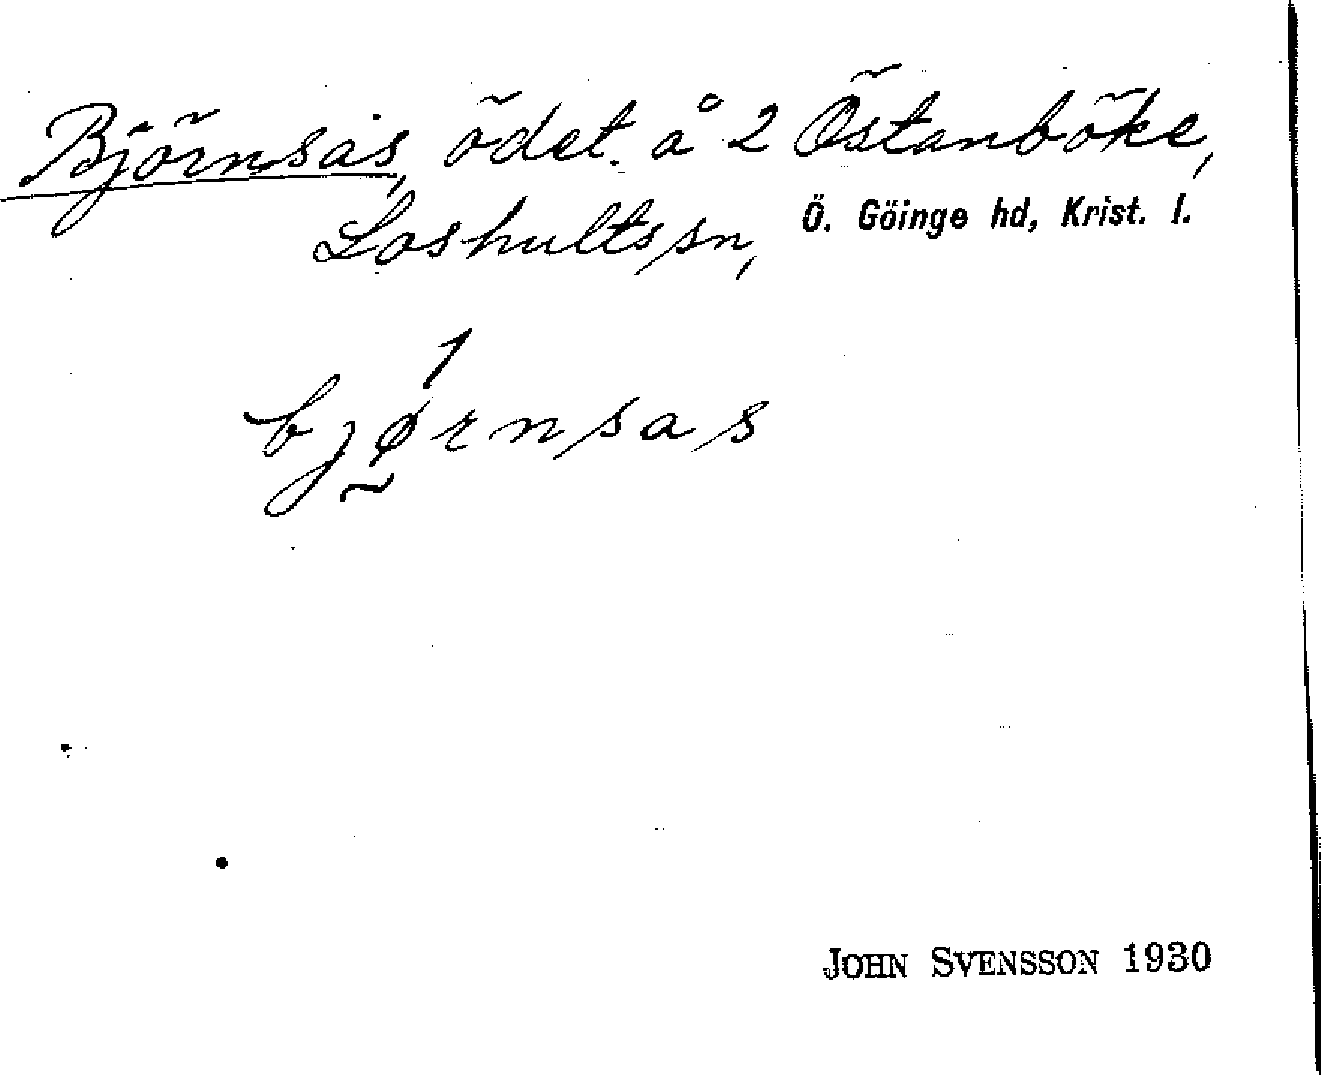 Björnsås, ödet. å 2 Östanböke,
Loshults sn, Ö. Göinge hd, Krist. l.
bjørnsas
JOHN SVENSSON 1930